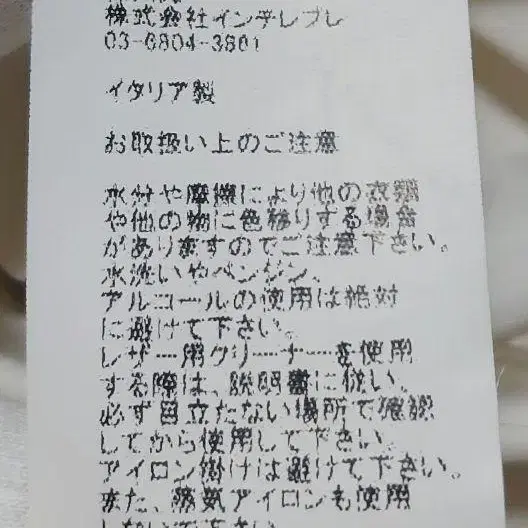 株式会社インターブレ
03-6804-3861
イタリア製
お取扱い上のご注意
水分や摩擦により他の衣類
や他の物に色移りする場合
がありますのでご注意下さい。
水洗いやベンジン、
アルコールの使用は絶対
に避けて下さい。
レザー用クリーナーを使用
する際は、説明書に従い、
必ず目立たない場所で確認
してから使用して下さい。
アイロン掛けは避けて下さい。
また、蒸気アイロンも使用
しないで下さい。